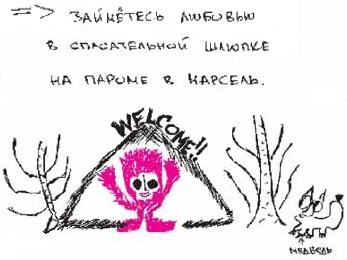 => ЗАЙМЁТЕСЬ ЛЮБОВЬЮ
В СПАСАТЕЛЬНОЙ ШЛЮПКЕ
НА ПАРОМЕ В МАРСЕЛЬ.
WELCOME!!
МЕДВЕДЬ